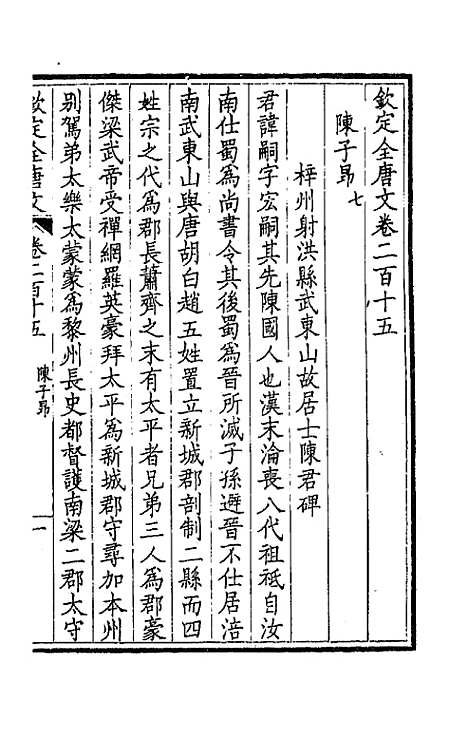 欽定全唐文卷二百十五
陳子昻七
梓州射洪縣武東山故居士陳君碑
君諱嗣字宏嗣其先陳國人也漢末淪喪八代祖祗自汝
南仕蜀為尚書令其後蜀為晉所滅子孫避晉不仕居涪
南武東山與唐胡白趙五姓置立新城郡剖制二縣而四
姓宗之代為郡長蕭齊之末有太平者兄弟三人為郡豪
傑梁武帝受禪網羅英豪拜太平為新城郡守尋加本州
別駕弟太樂太蒙蒙為黎州長史都督護南梁二郡太守
欽定全唐文
卷二百十五
陳子昻
一